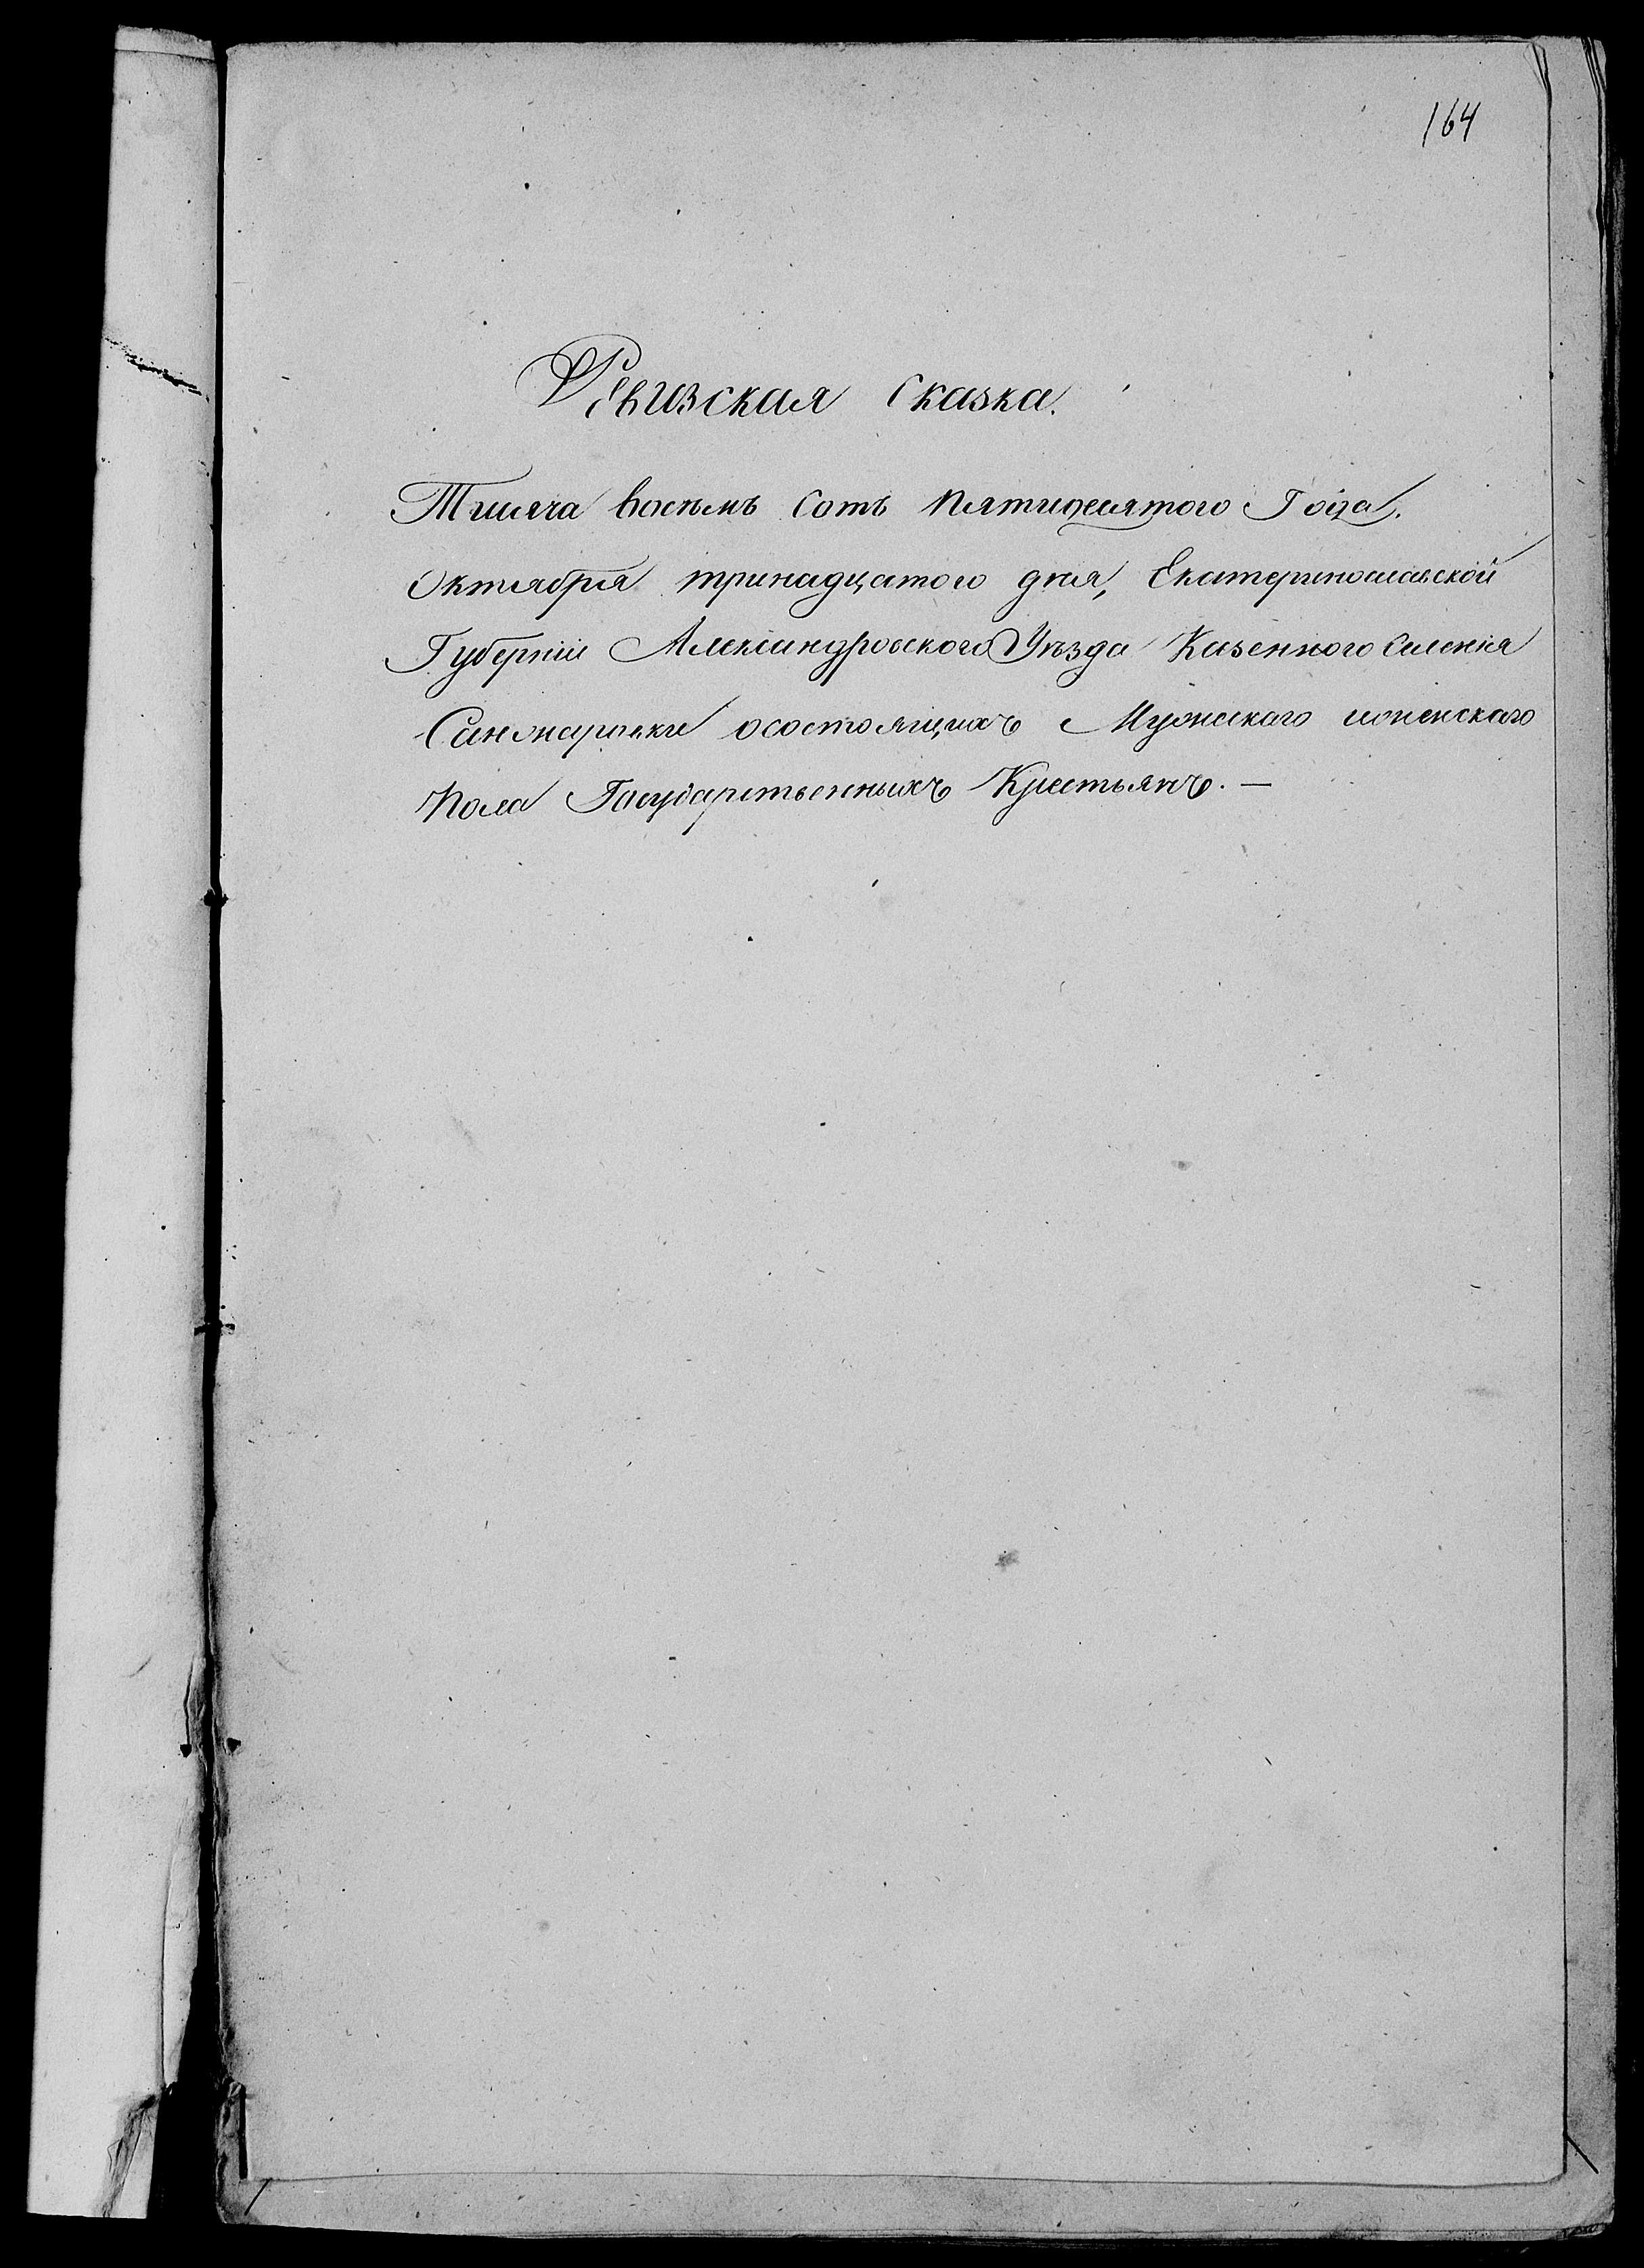 164
Ревизская Сказка.
Тысяча восемь сотъ пятидесятого Года,
Октября тринадцатого дня, Екатеринославской
Губерніи Александровского Уѣзда Казенного Селенія
Санжаровки осостоящихъ Мужскаго иженскаго
Пола Государственныхъ Крестьянъ. —